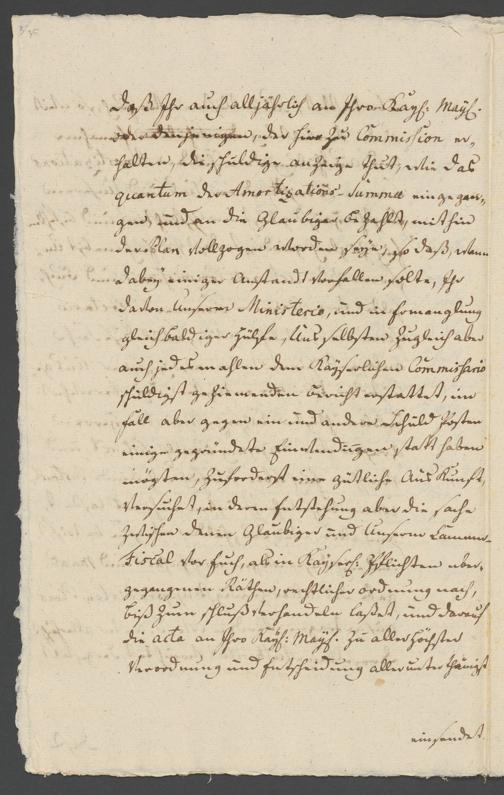 daß Ihr auch alljährlich an Ihro Kayß: Mayß:
oder denjenigen, der hierzu Commission er-
halten, die schuldige anzeige thut, wie das
quantum der Amortisations-Summae eingegan-
gen, und an die Glaubiger bezahlt, mithin
der Plan vollzogen worden seye, so daß, wann
dabey einiger Anstandt vorfallen solte, Ihr
davon Unserm Ministerio, und in Ermanglung
gleichbaldiger Hülfe, Uns selbsten zugleich aber
auch jedesmahlen dem Kayserlichen Commissario
schuldigst geziemenden bericht erstattet, im
fall aber gegen ein und andere Schuld Posten
einige gegründete Einwendungen statt haben
mögten, zuforderst eine gütliche Auskunft
versuchet, in deren Entstehung aber die sache
zwischen denen Glaubiger und Unserm Cammer-
Fiscal vor Euch, als in Kayserl: Pflichten über-
gegangenen Räthen, rechtlicher ordnung nach,
biß zum schluß verhandeln laßet, und darauf
die acta an Ihro Kayß: Mayß: zu allerhöchster
Verordnung und Entscheidung allerunterthänigst
einsendet